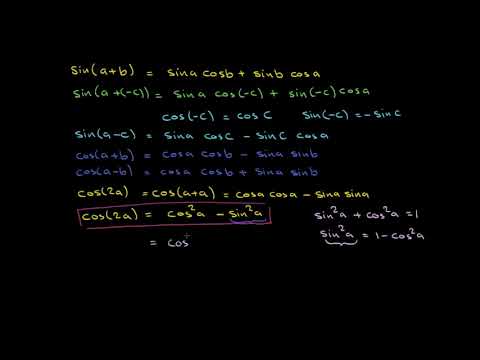 sin(a+b) = sina cosb + sinb cosa
sin(a+(-c)) = sina cos(-c) + sin(-c) cosa
cos(-c) = cosc sin(-c) = -sinc
sin(a-c) = sina cosc - sinc cosa
cos(a+b) = cosa cosb - sina sinb
cos(a-b) = cosa cosb + sina sinb
cos(2a) = cos(a+a) = cosa cosa - sina sina
cos(2a) = cos²a - sin²a sin²a + cos²a = 1
= cos sin²a = 1 - cos²a